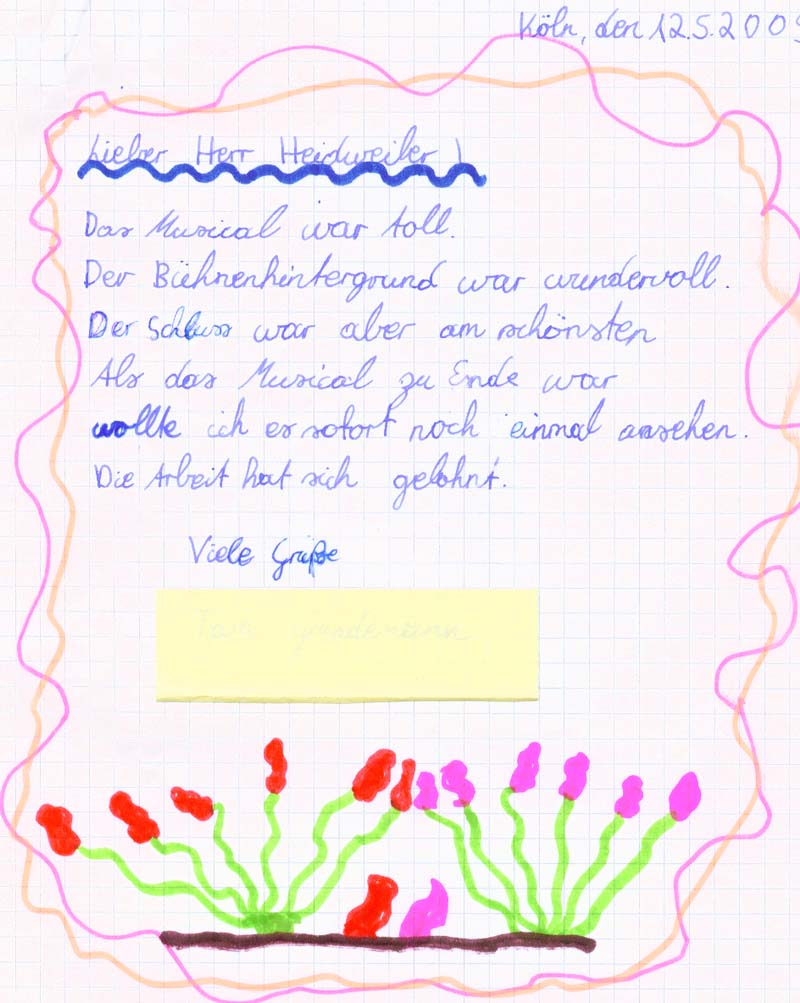 Köln, den 12.5.2009
Lieber Herr Heidweiler!
Das Musical war toll.
Der Bühnenhintergrund war wundervoll.
Der Schluss war aber am schönsten
Als das Musical zu Ende war
wollte ich es sofort noch einmal ansehen.
Die Arbeit hat sich gelohnt.
Viele Grüße